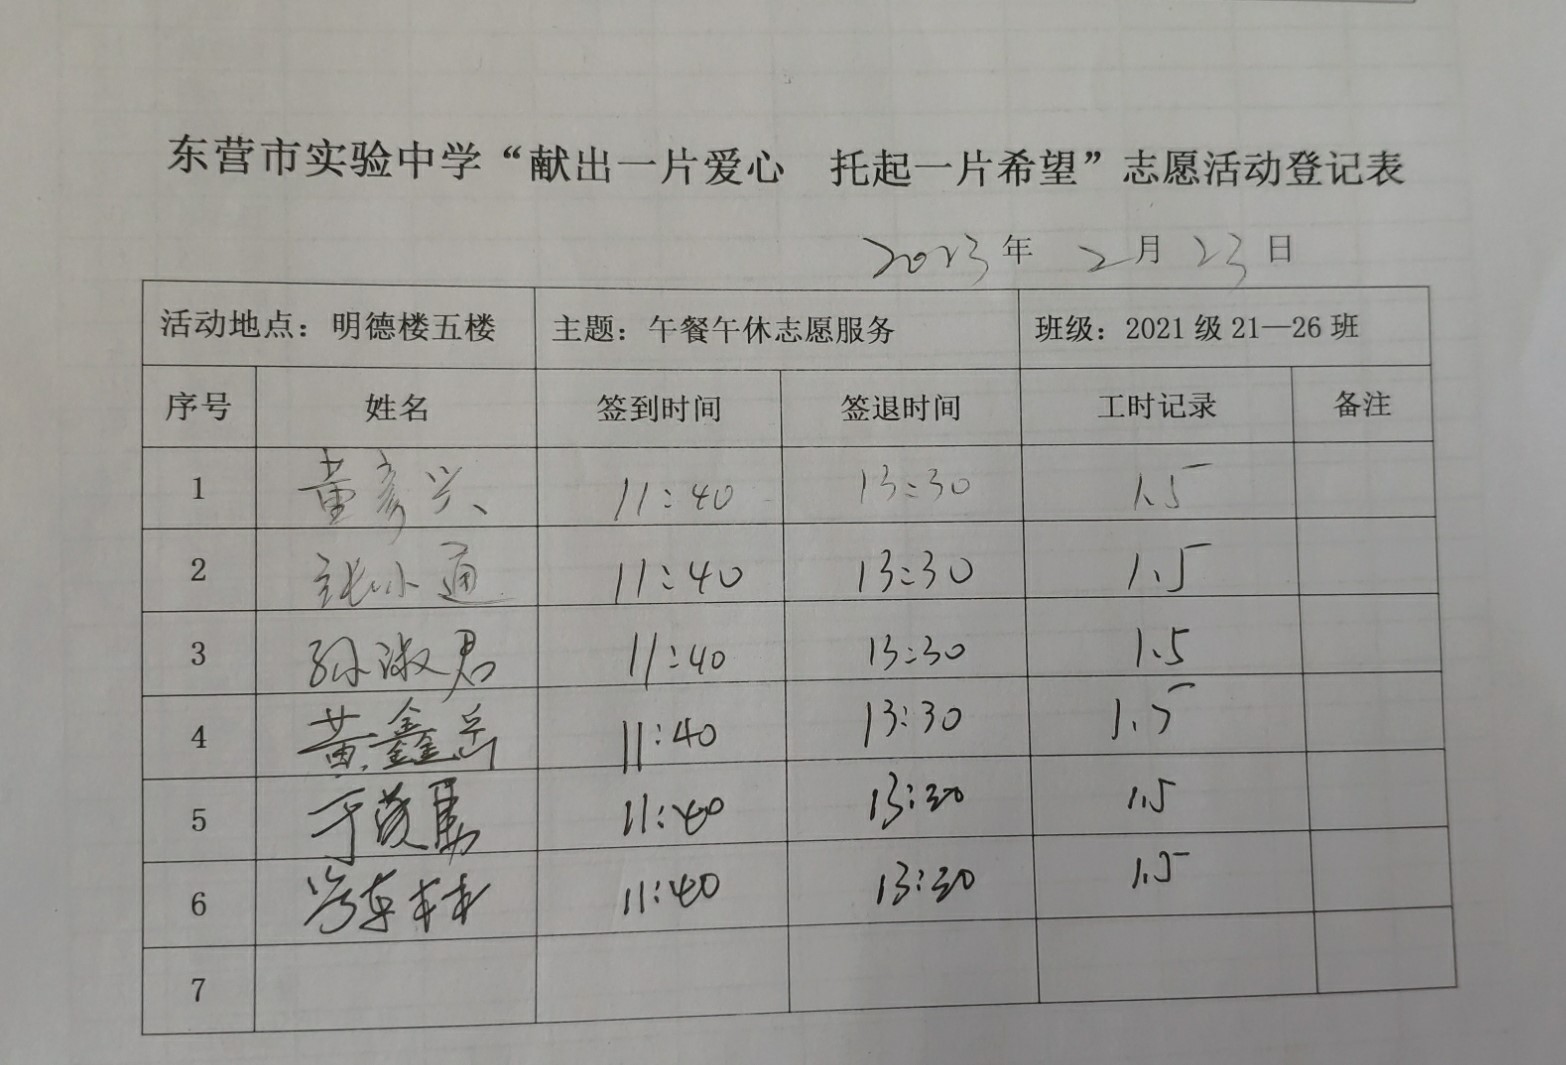 东营市实验中学“献出一片爱心 托起一片希望”志愿活动登记表
2023年 2月 23日
活动地点：明德楼五楼 主题：午餐午休志愿服务 班级：2021级21—26班
序号 姓名 签到时间 签退时间 工时记录 备注
1 董彦兴 11:40 13:30 1.5
2 张小通 11:40 13:30 1.5
3 孙淑君 11:40 13:30 1.5
4 黄鑫岳 11:40 13:30 1.5
5 于茂勇 11:40 13:30 1.5
6 11:40 13:30 1.5
7